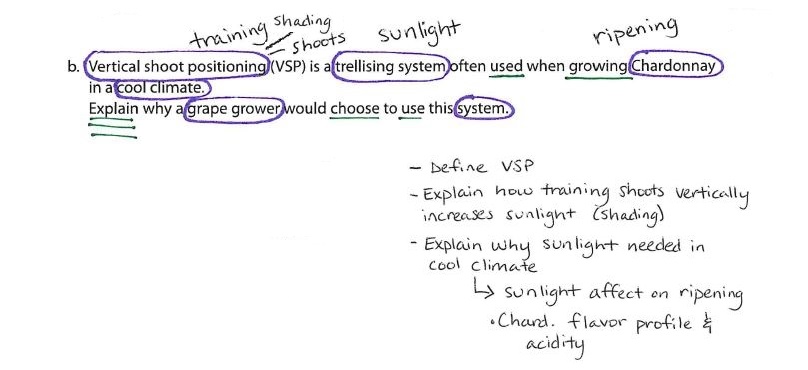 training shading
shoots
sunlight
ripening
b. Vertical shoot positioning (VSP) is a trellising system often used when growing Chardonnay
in a cool climate.
Explain why a grape grower would choose to use this system.
- Define VSP
- Explain how training shoots vertically
increases sunlight (shading)
- Explain why sunlight needed in
cool climate
↳ sunlight affect on ripening
• Chard. flavor profile &
acidity